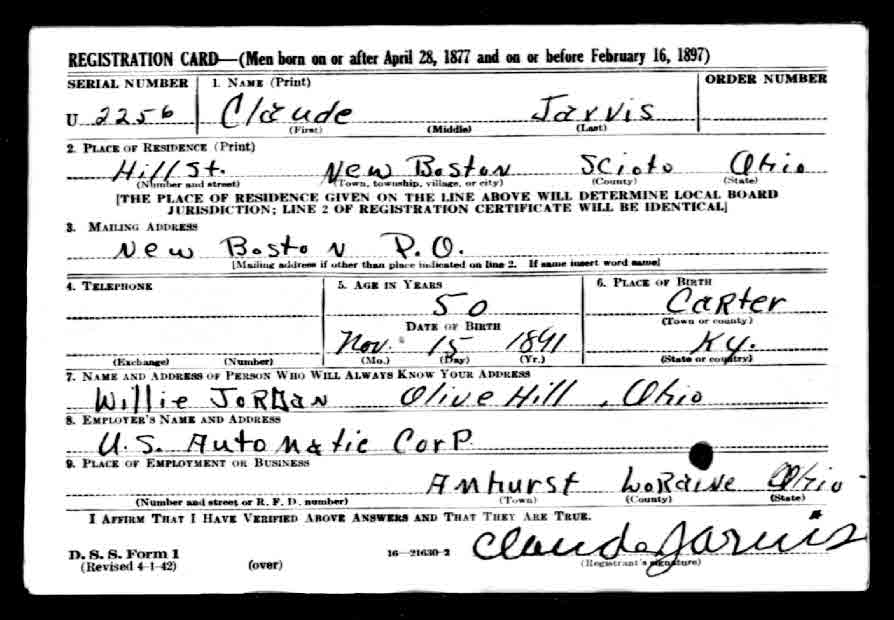 REGISTRATION CARD—(Men born on or after April 28, 1877 and on or before February 16, 1897)
SERIAL NUMBER 1. NAME (Print) ORDER NUMBER
U 2256 Claude Jarvis
(First) (Middle) (Last)
2. PLACE OF RESIDENCE (Print)
Hill St. New Boston Scioto Ohio
(Number and street) (Town, township, village, or city) (County) (State)
[THE PLACE OF RESIDENCE GIVEN ON THE LINE ABOVE WILL DETERMINE LOCAL BOARD
JURISDICTION; LINE 2 OF REGISTRATION CERTIFICATE WILL BE IDENTICAL]
3. MAILING ADDRESS
New Boston P.O.
[Mailing address if other than place indicated on line 2. If same insert word same]
4. TELEPHONE 5. AGE IN YEARS 6. PLACE OF BIRTH
50 Carter
DATE OF BIRTH (Town or county)
Nov. 15 1891 Ky.
(Exchange) (Number) (Mo.) (Day) (Yr.) (State or country)
7. NAME AND ADDRESS OF PERSON WHO WILL ALWAYS KNOW YOUR ADDRESS
Willie Jordan Olive Hill, Ohio
8. EMPLOYER'S NAME AND ADDRESS
U.S. Automatic Corp.
9. PLACE OF EMPLOYMENT OR BUSINESS
Amhurst Loraine Ohio
(Number and street or R. F. D. number) (Town) (County) (State)
I AFFIRM THAT I HAVE VERIFIED ABOVE ANSWERS AND THAT THEY ARE TRUE.
D. S. S. Form 1 16—21630-2 Claude Jarvis
(Revised 4-1-42) (over) (Registrant's signature)